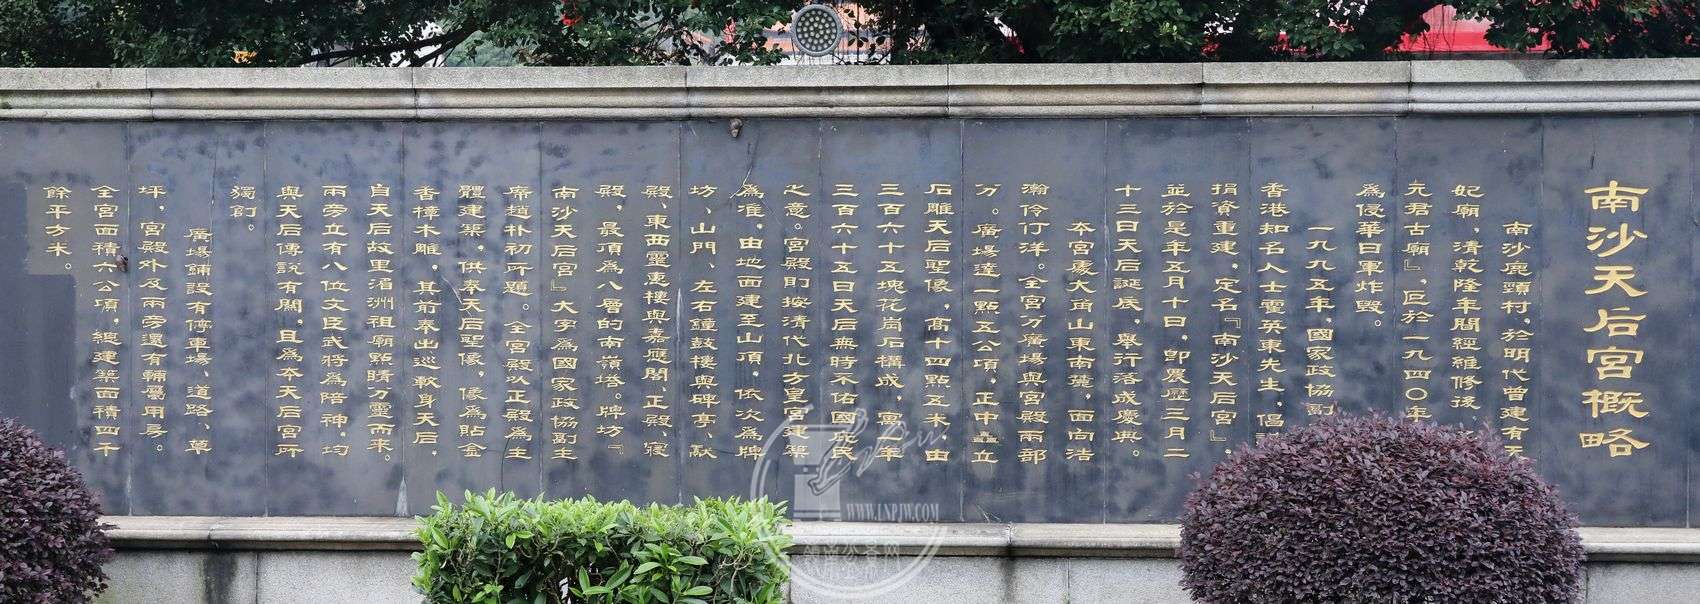 南沙天后宮概略
南沙鹿頸村，於明代曾建有天
妃廟，清乾隆年間經維修後
元君古廟』，巨於一九四〇年
為侵華日軍炸毀。
一九九五年，國家政協副
香港知名人士霍英東先生，倡
捐資重建，定名『南沙天后宮』。
並於是年五月十日，即農歷三月二
十三日天后誕底，舉行落成慶典。
本宮處大角山東南麓，面向浩
瀚伶仃洋。全宮方廣場與宮殿兩部
分。廣場達一點五公頃，正中矗立
石雕天后聖像，高十四點五米，由
三百六十五塊花崗石構成，寓一年
三百六十五日天后無時不佑國庇民
之意。宮殿則按清代北方皇宮建築
為准，由地面建至山頂，依次為牌
坊、山門、左右鐘鼓樓與碑亭、獻
殿、東西靈惠樓與嘉應閣、正殿、寢
殿，最頂為八層的南嶺塔。牌坊『
南沙天后宮』大字為國家政協副主
席趙朴初所題。全宮殿以正殿為主
體建築，供奉天后聖像，像為貼金
香樟木雕，其前奉出巡軟身天后，
自天后故里湄洲祖廟點睛分靈而來。
兩旁立有八位文臣武將為陪神，均
與天后傳說有關，且為本天后宮所
獨創。
廣場鋪設有停車場、道路、草
坪，宮殿外及兩旁還有輔屬用房。
全宮面積六公頃，總建築面積四千
餘平方米。
WWW.LNPJW.COM